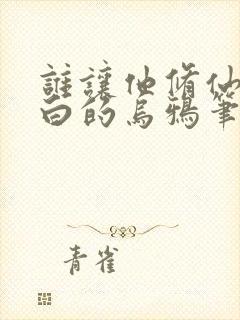 誰讓他修仙
白的烏鴉筆
青雀